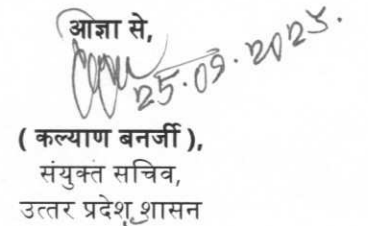 आज्ञा से,
25.09.2025.
( कल्याण बनर्जी ),
संयुक्त सचिव,
उत्तर प्रदेश शासन